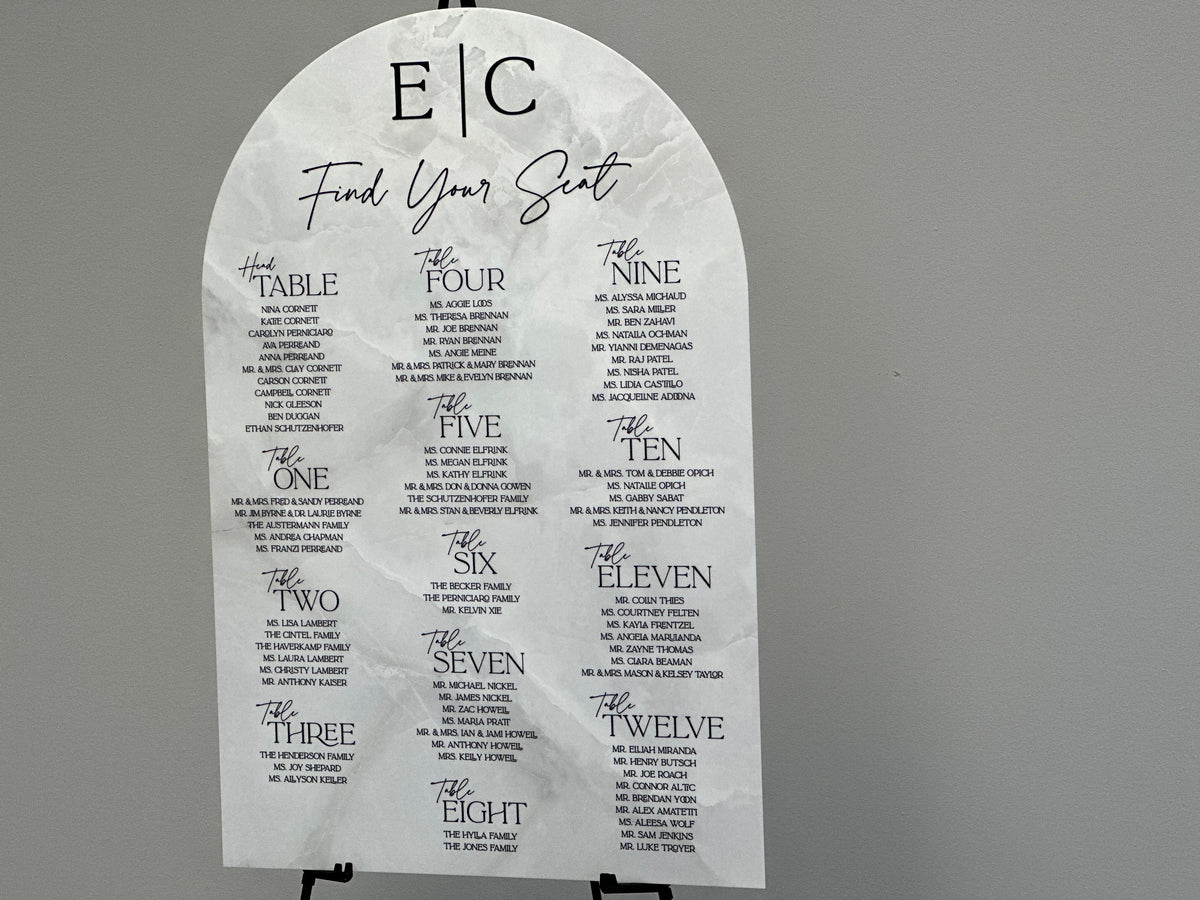 E|C
Find Your Seat
Head
TABLE
NINA CORNETT
KATIE CORNETT
CAROLYN PERNICIARO
AVA PERREAND
ANNA PERREAND
MR. & MRS. CLAY CORNETT
CARSON CORNETT
CAMPBELL CORNETT
NICK GLEESON
BEN DUGGAN
ETHAN SCHUTZENHOFER
Table
ONE
MR. & MRS. FRED & SANDY PERREAND
MR. JIM BYRNE & DR. LAURIE BYRNE
THE AUSTERMANN FAMILY
MS. ANDREA CHAPMAN
MS. FRANZI PERREAND
Table
TWO
MS. LISA LAMBERT
THE CINTEL FAMILY
THE HAVERKAMP FAMILY
MS. LAURA LAMBERT
MS. CHRISTY LAMBERT
MR. ANTHONY KAISER
Table
THREE
THE HENDERSON FAMILY
MS. JOY SHEPARD
MS. ALLYSON KELLER
Table
FOUR
MS. AGGIE LOOS
MS. THERESA BRENNAN
MR. JOE BRENNAN
MR. RYAN BRENNAN
MS. ANGIE MEINE
MR. & MRS. PATRICK & MARY BRENNAN
MR. & MRS. MIKE & EVELYN BRENNAN
Table
FIVE
MS. CONNIE ELFRINK
MS. MEGAN ELFRINK
MS. KATHY ELFRINK
MR. & MRS. DON & DONNA GOWEN
THE SCHUTZENHOFER FAMILY
MR. & MRS. STAN & BEVERLY ELFRINK
Table
SIX
THE BECKER FAMILY
THE PERNICIARO FAMILY
MR. KELVIN XIE
Table
SEVEN
MR. MICHAEL NICKEL
MR. JAMES NICKEL
MR. ZAC HOWELL
MS. MARIA PRATT
MR. & MRS. IAN & JAMI HOWELL
MR. ANTHONY HOWELL
MRS. KELLY HOWELL
Table
EIGHT
THE HYLLA FAMILY
THE JONES FAMILY
Table
NINE
MS. ALYSSA MICHAUD
MS. SARA MILLER
MR. BEN ZAHAVI
MS. NATALIA OCHMAN
MR. YIANNI DEMENAGAS
MR. RAJ PATEL
MS. NISHA PATEL
MS. LIDIA CASTILLO
MS. JACQUELINE ADDONA
Table
TEN
MR. & MRS. TOM & DEBBIE OPICH
MS. NATALIE OPICH
MS. GABBY SABAT
MR. & MRS. KEITH & NANCY PENDLETON
MS. JENNIFER PENDLETON
Table
ELEVEN
MR. COLIN THIES
MS. COURTNEY FELTEN
MS. KAYLA FRENTZEL
MS. ANGELA MARULANDA
MR. ZAYNE THOMAS
MS. CLARA BEAMAN
MR. & MRS. MASON & KELSEY TAYLOR
Table
TWELVE
MR. ELIJAH MIRANDA
MR. HENRY BUTSCH
MR. JOE ROACH
MR. CONNOR ALTIC
MR. BRENDAN YOON
MR. ALEX AMATETTI
MS. ALEESA WOLF
MR. SAM JENKINS
MR. LUKE TROYER